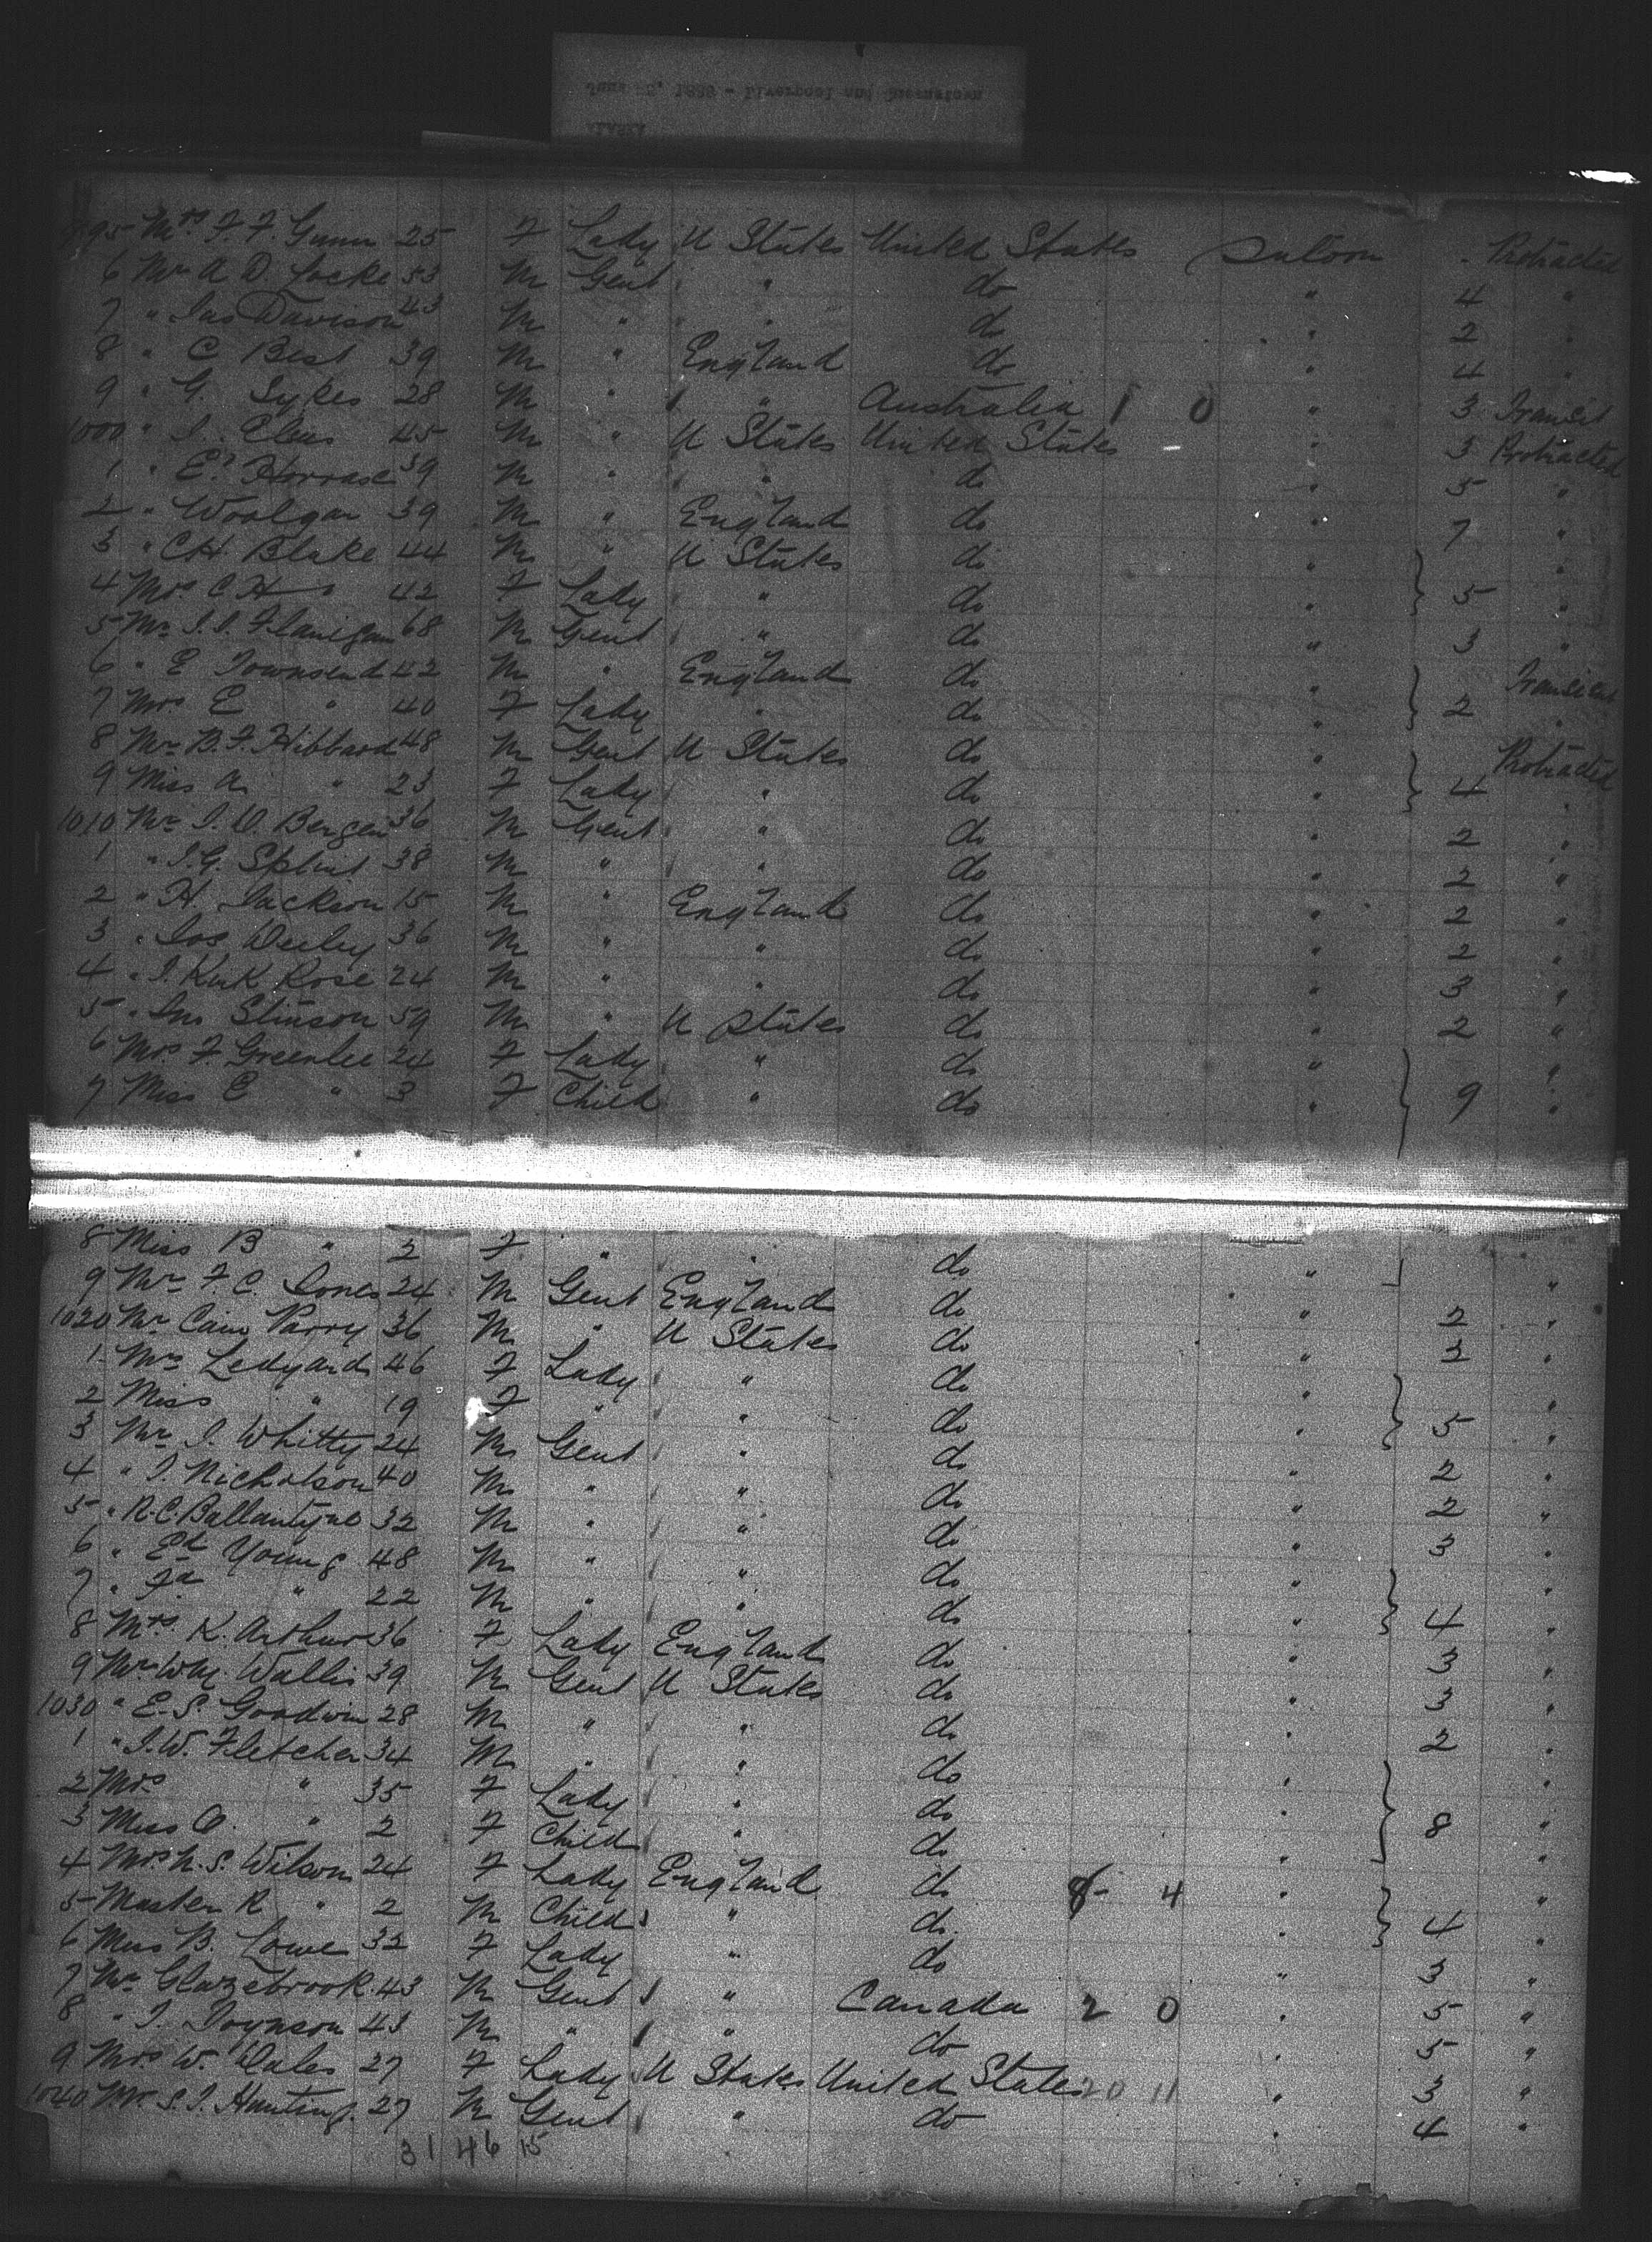 June 25, 1888 - Liverpool and Queenstown
ALASKA
995 Mrs F. F. Gunn 25 F Lady U States United States Saloon Protracted
6 Mr A D Locke 53 M Gent " do " 4 "
7 " Jas Davison 43 M " " do " 2 "
8 " C Best 39 M " England do " 4 "
9 " G. Sykes 28 M " " Australia 1 0 " 3 Transit
1000 " J. 45 M " U States United States " 3 Protracted
1 " 39 M " " do " 5 "
2 " Woolgar 39 M " England do " 7 "
3 " C H. Blake 44 M " U States do " "
4 Mrs C H " 42 F Lady " do " 5 "
5 Mr J. J. Flanigan 68 M Gent " do " 3 "
6 " E Townsend 42 M " England do " Transient
7 Mrs E " 40 F Lady " do " 2 "
8 Mr B. F. Hibbard 48 M Gent U States do " Protracted
9 Miss A. " 23 F Lady " do " 4 "
1010 Mr J. D. Bergen 36 M Gent " do " 2 "
1 " J. G. 38 M " " do " 2 "
2 " H. Jackson 15 M " England do " 2 "
3 " Jos 36 M " " do " 2 "
4 " J. Kirk Rose 24 M " " do " 3 "
5 " Jno Stinson 59 M " U States do " 2 "
6 Mrs F. Greenlee 24 F Lady " do " "
7 Miss E " 3 F Child " do " 9 "
8 Miss B " 2 F " " do " "
9 Mr F. C. Jones 24 M Gent England do " 2 "
1020 Mr Cain Parry 36 M " U States do " 2 "
1 Mrs Ledyard 46 F Lady " do " "
2 Miss " 19 F " " do " 5 "
3 Mr J. Whitty 24 M Gent " do " 2 "
4 " J. Nicholson 40 M " " do " 2 "
5 " R. C. Ballantyne 32 M " " do " 3 "
6 " Ed Young 48 M " " do " "
7 " " 22 M " " do " 4 "
8 Mrs K. Arthur 36 F Lady England do " 3 "
9 Mr Wm. Wallis 39 M Gent U States do " 3 "
1030 " E. S. Goodwin 28 M " " do " 2 "
1 " J. W. Fletcher 34 M " " do " "
2 Mrs " 35 F Lady " do " "
3 Miss O. " 2 F Child " do " 8 "
4 Mrs N. S. Wilson 24 F Lady England do 8 4 " "
5 Master R " 2 M Child " do " 4 "
6 Miss B. Lowe 32 F Lady " do " 3 "
7 Mr Glazebrook 43 M Gent " Canada 2 0 " 5 "
8 " J. Joynson 43 M " " do " 5 "
9 Mrs W. Dales 27 F Lady U States United States 20 11 " 3 "
1040 Mr. S. J. Hunting 27 M Gent " do " 4 "
31 46 15